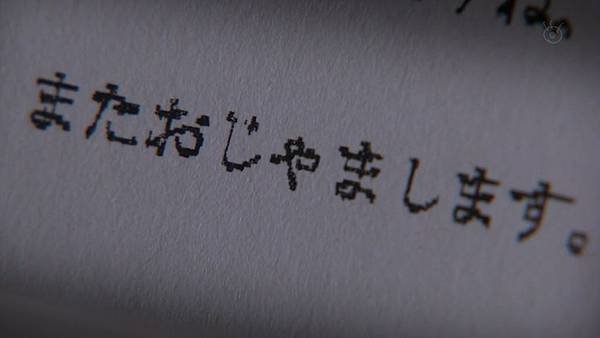 またおじゃまします。